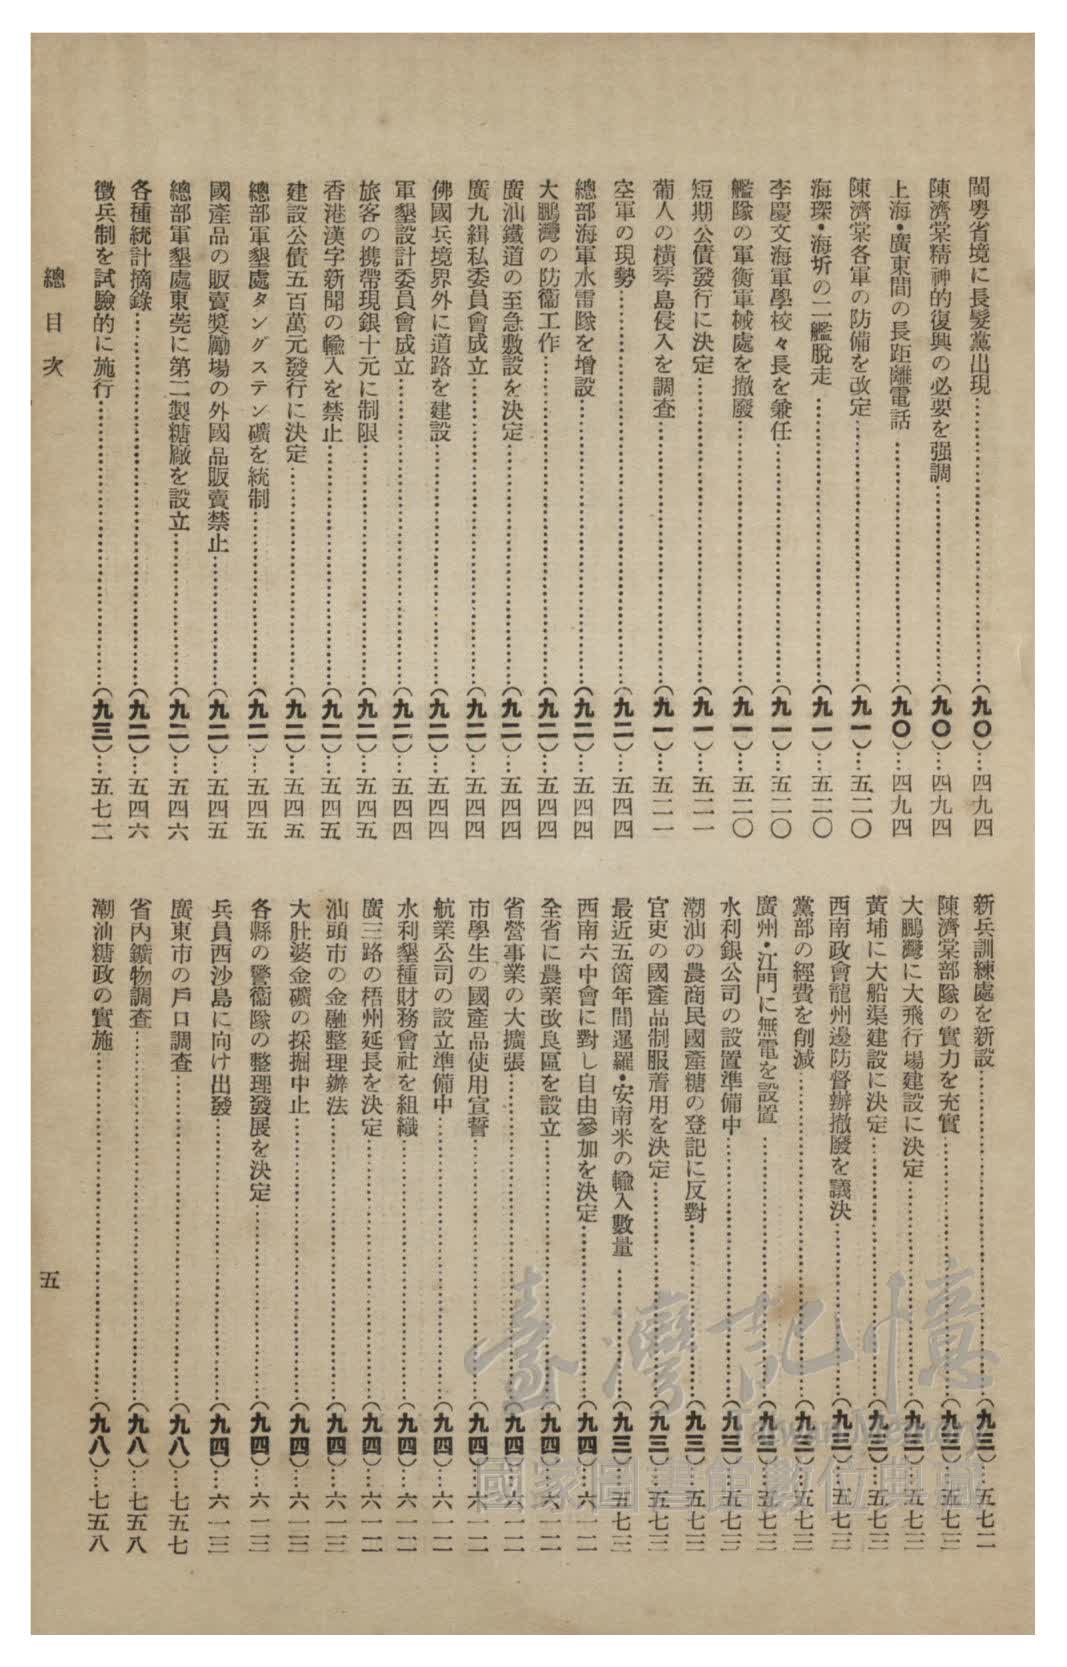 閩粤省境に長髮黨出現…(九〇)…四九四
陳濟棠精神的復興の必要を强調…(九〇)…四九四
上海・廣東間の長距離電話…(九〇)…四九四
陳濟棠各軍の防備を改定…(九一)…五二〇
海琛・海圻の二艦脫走…(九一)…五二〇
李慶文海軍學校々長を兼任…(九一)…五二〇
艦隊の軍衡軍械處を撤廢…(九一)…五二〇
短期公債發行に決定…(九一)…五二一
葡人の橫琴島侵入を調査…(九一)…五二一
空軍の現勢…(九二)…五四四
總部海軍水雷隊を增設…(九二)…五四四
大鵬灣の防衞工作…(九二)…五四四
廣汕鐵道の至急敷設を決定…(九二)…五四四
廣九緝私委員會成立…(九二)…五四四
佛國兵境界外に道路を建設…(九二)…五四四
軍墾設計委員會成立…(九二)…五四四
旅客の携帶現銀十元に制限…(九二)…五四五
香港漢字新聞の輸入を禁止…(九二)…五四五
建設公債五百萬元發行に決定…(九二)…五四五
總部軍墾處タングステン礦を統制…(九二)…五四五
國產品の販賣奬勵場の外國品販賣禁止…(九二)…五四五
總部軍墾處東莞に第二製糖廠を設立…(九二)…五四六
各種統計摘錄…(九二)…五四六
徵兵制を試驗的に施行…(九三)…五七二
新兵訓練處を新設…(九三)…五七二
陳濟棠部隊の實力を充實…(九三)…五七三
大鵬灣に大飛行場建設に決定…(九三)…五七三
黃埔に大船渠建設に決定…(九三)…五七三
西南政會龍州邊防督辦撤廢を議決…(九三)…五七三
黨部の經費を削減…(九三)…五七三
廣州・江門に無電を設置…(九三)…五七三
水利銀公司の設置準備中…(九三)…五七三
潮汕の農商民國產糖の登記に反對…(九三)…五七三
官吏の國產品制服着用を決定…(九三)…五七三
最近五箇年間暹羅・安南米の輸入數量…(九三)…五七三
西南六中會に對し自由參加を決定…(九四)…六一二
全省に農業改良區を設立…(九四)…六一二
省營事業の大擴張…(九四)…六一二
市學生の國產品使用宣誓…(九四)…六一二
航業公司の設立準備中…(九四)…六一二
水利墾種財務會社を組織…(九四)…六一二
廣三路の梧州延長を決定…(九四)…六一二
汕頭市の金融整理辦法…(九四)…六一三
大肚婆金礦の採掘中止…(九四)…六一三
各縣の警衞隊の整理發展を決定…(九四)…六一三
兵員西沙島に向け出發…(九四)…六一三
廣東市の戶口調査…(九八)…七五七
省內鑛物調査…(九八)…七五八
潮汕糖政の實施…(九八)…七五八
總目次
五
臺灣記憶
Taiwan Memory
國家圖書館數位典藏